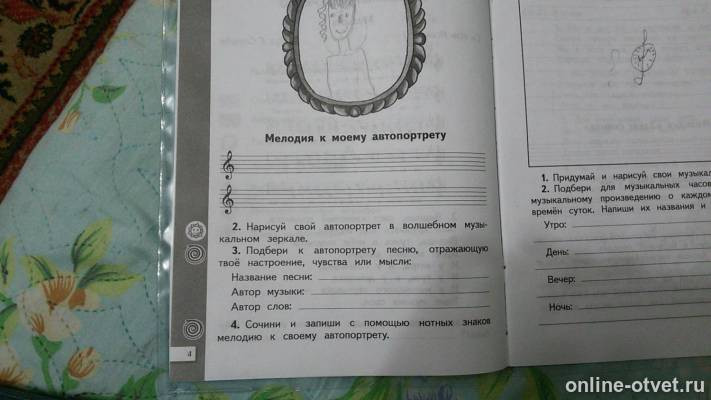 Мелодия к моему автопортрету
2. Нарисуй свой автопортрет в волшебном музы-
кальном зеркале.
3. Подбери к автопортрету песню, отражающую
твоё настроение, чувства или мысли:
Название песни:
Автор музыки:
Автор слов:
4. Сочини и запиши с помощью нотных знаков
мелодию к своему автопортрету.
4
1. Придумай и нарисуй свои музыкал
2. Подбери для музыкальных часов
музыкальному произведению о каждом
времён суток. Напиши их названия и
Утро:
День:
Вечер:
Ночь:
online-otvet.ru